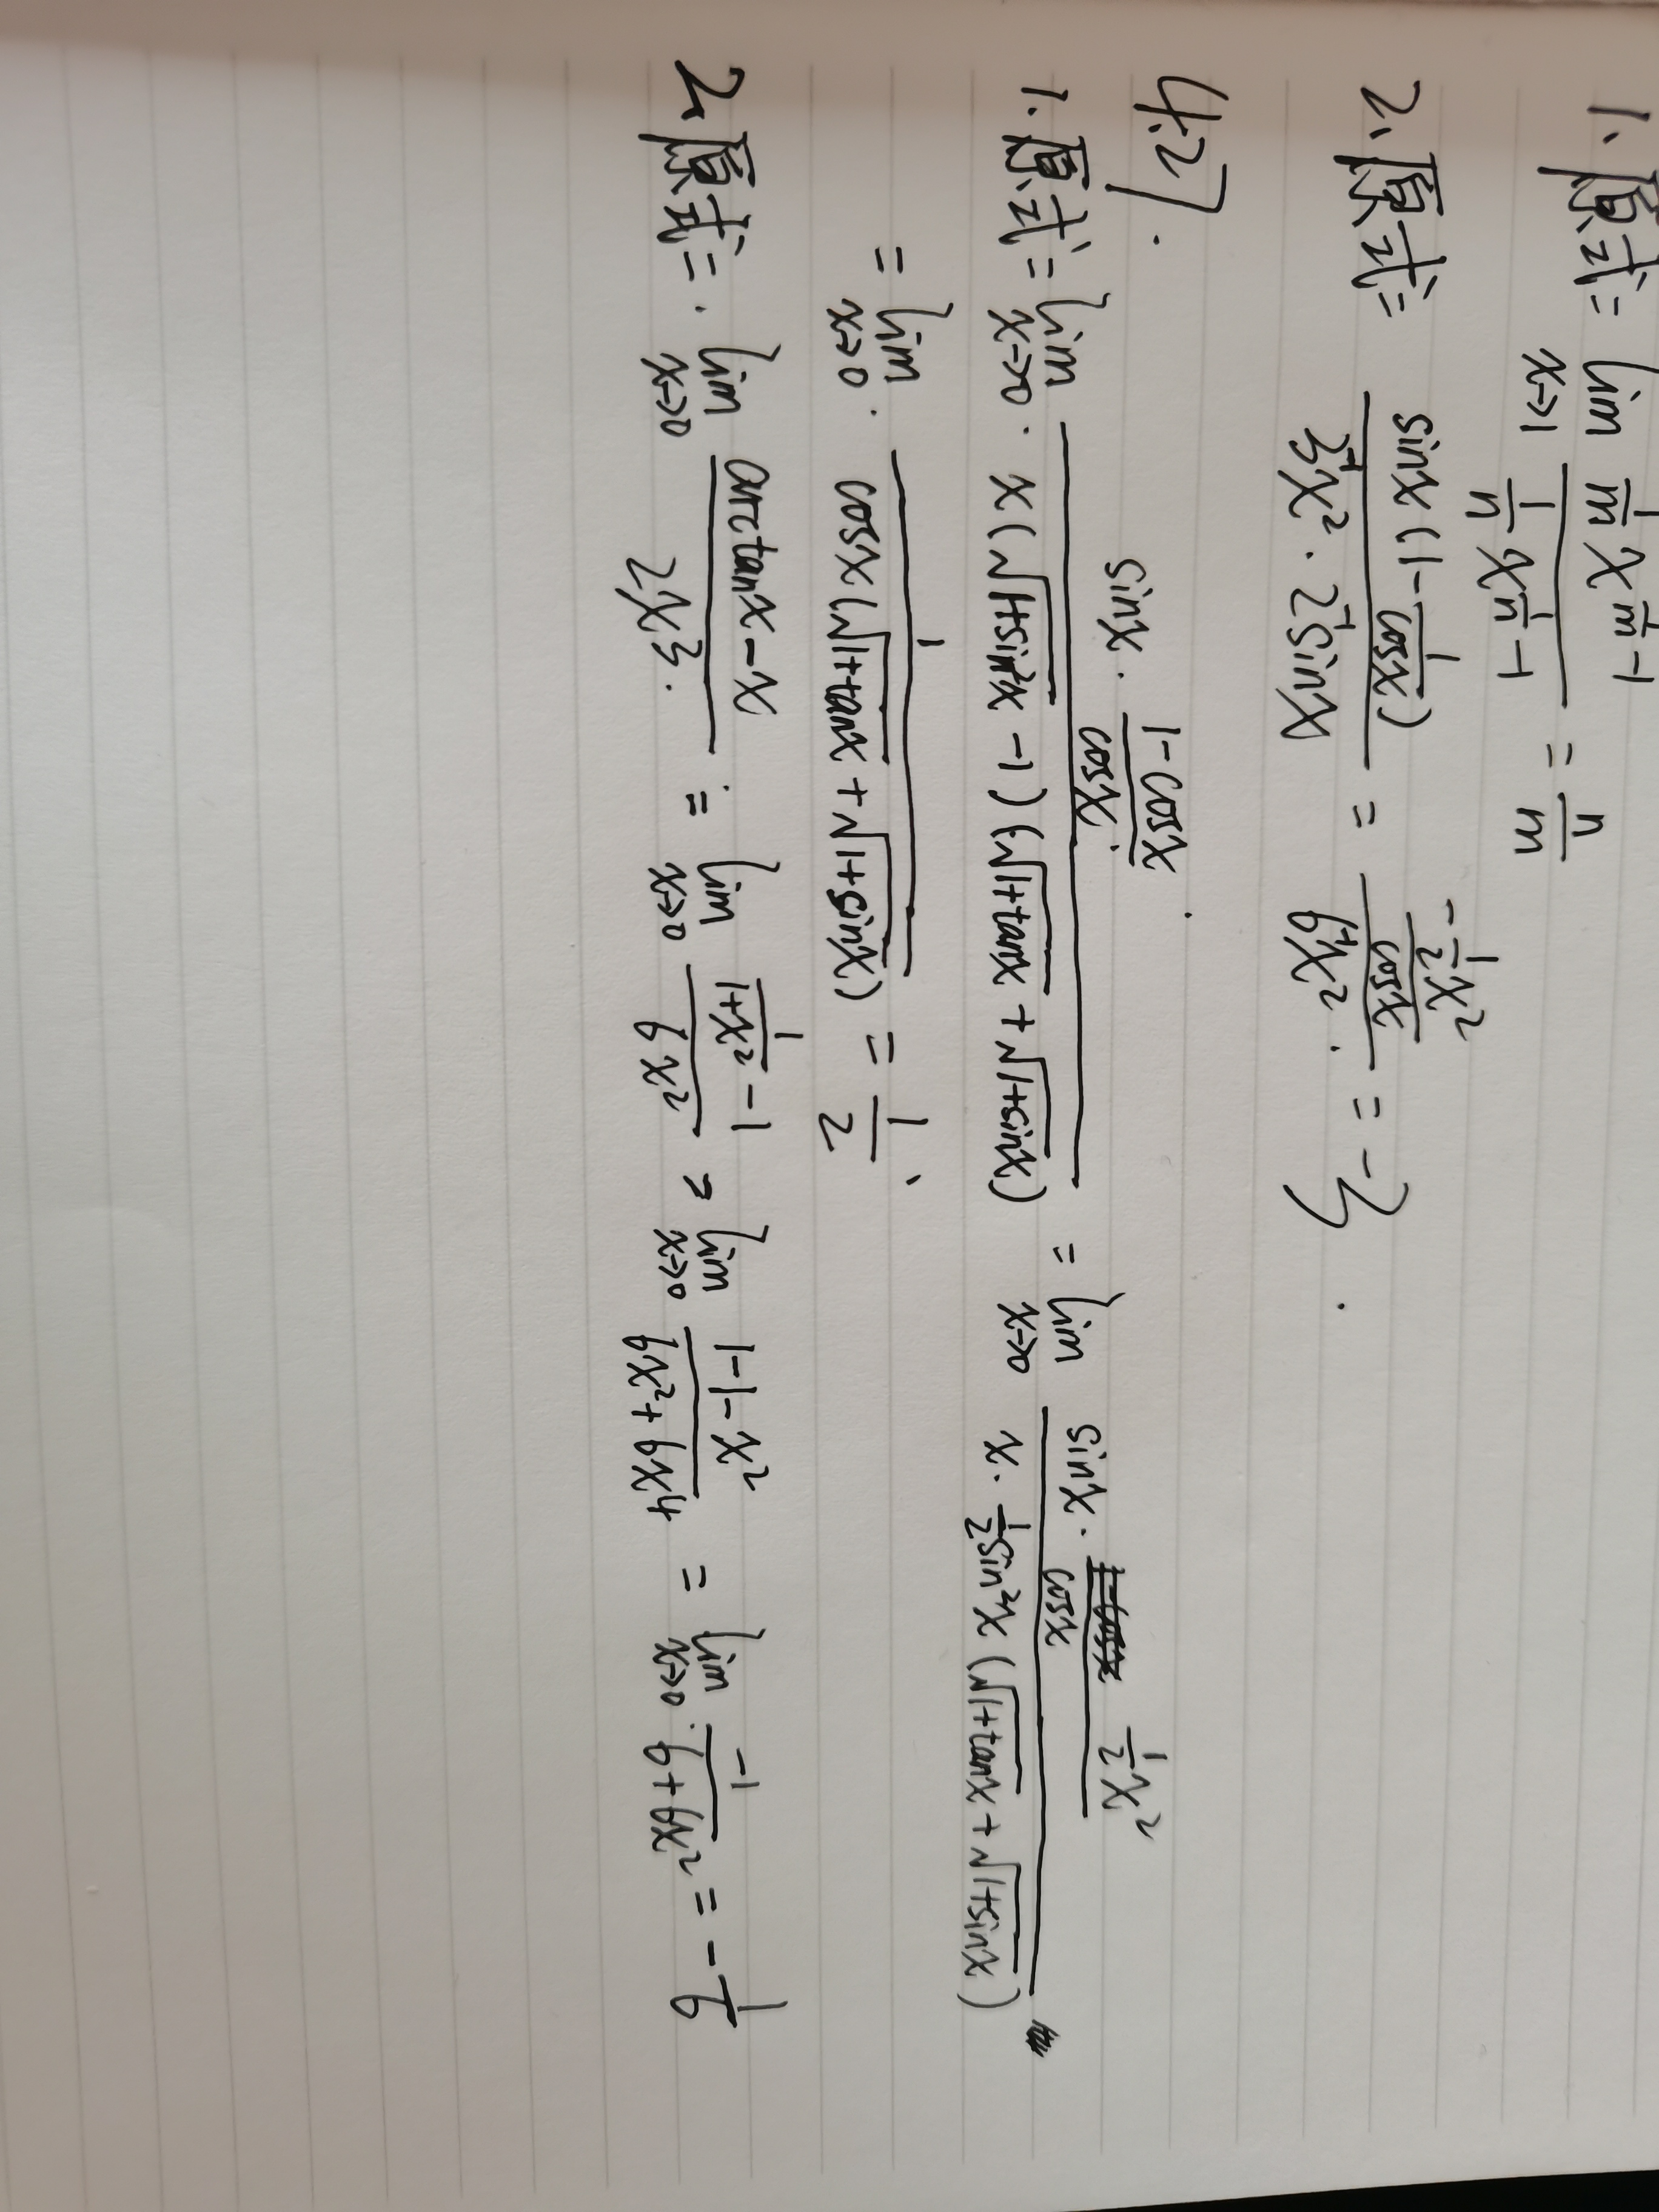 1、原式= lim_{x→1} \frac{\frac{1}{m}x^{\frac{1}{m}-1}}{\frac{1}{n}x^{\frac{1}{n}-1}} = \frac{n}{m}
2、原式= \frac{sinx(1-\frac{1}{cosx})}{3^{-1}x^2·2^{-1}sinx} = \frac{\frac{-\frac{1}{2}x^2}{cosx}}{6^{-1}x^2} = -3.
4.27.
1.原式= lim_{x→0} \frac{sinx·\frac{1-cosx}{cosx}}{x(\sqrt{1+sin^2x}-1)(\sqrt{1+tanx}+\sqrt{1+sinx})} = lim_{x→0} \frac{sinx·\frac{\frac{1}{2}x^2}{cosx}}{x·\frac{1}{2}sin^2x(\sqrt{1+tanx}+\sqrt{1+sinx})}
= lim_{x→0} \frac{1}{cosx(\sqrt{1+tanx}+\sqrt{1+sinx})} = \frac{1}{2}
2.原式= lim_{x→0} \frac{arctanx-x}{2x^3} = lim_{x→0} \frac{\frac{1}{1+x^2}-1}{6x^2} = lim_{x→0} \frac{1-1-x^2}{6x^2+6x^4} = lim_{x→0} \frac{-1}{6+6x^2} = -\frac{1}{6}